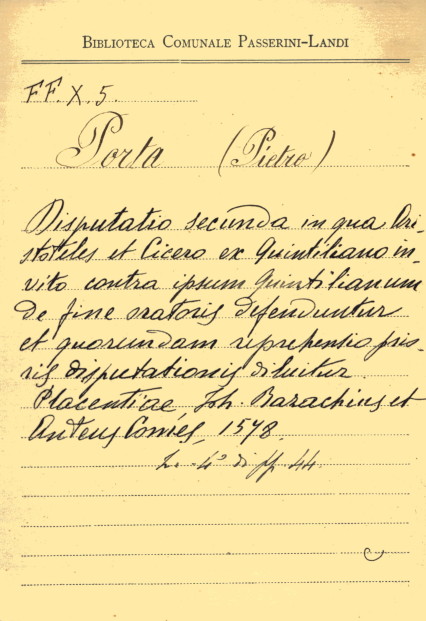 BIBLIOTECA COMUNALE PASSERINI-LANDI
FF. X. 5.
Porta (Pietro)
Disputatio secunda in qua Ari-
stoteles et Cicero ex Quintiliano in-
vito contra ipsum Quintilianum
de fine oratoris defenduntur
et quorundam reprehensio prio-
ris disputationis diluitur
Placentiae, Joh. Bazachius et
Anteus Comes, 1578.
in 4° di pp. 44.